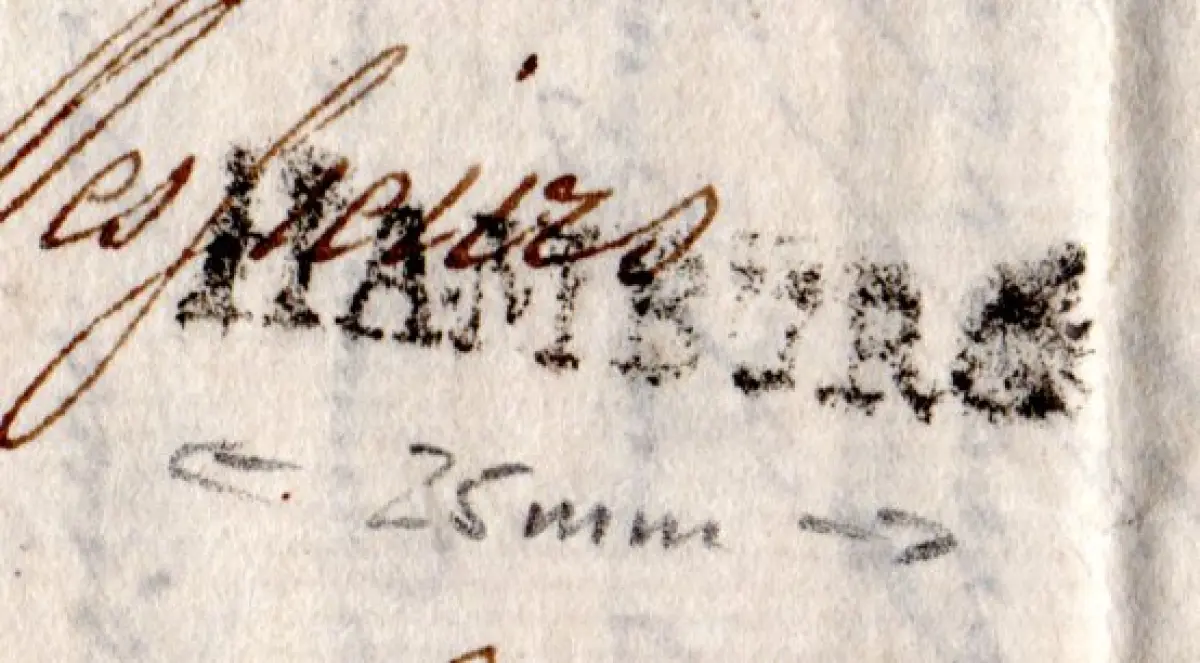 HAMBURG
← 25mm →